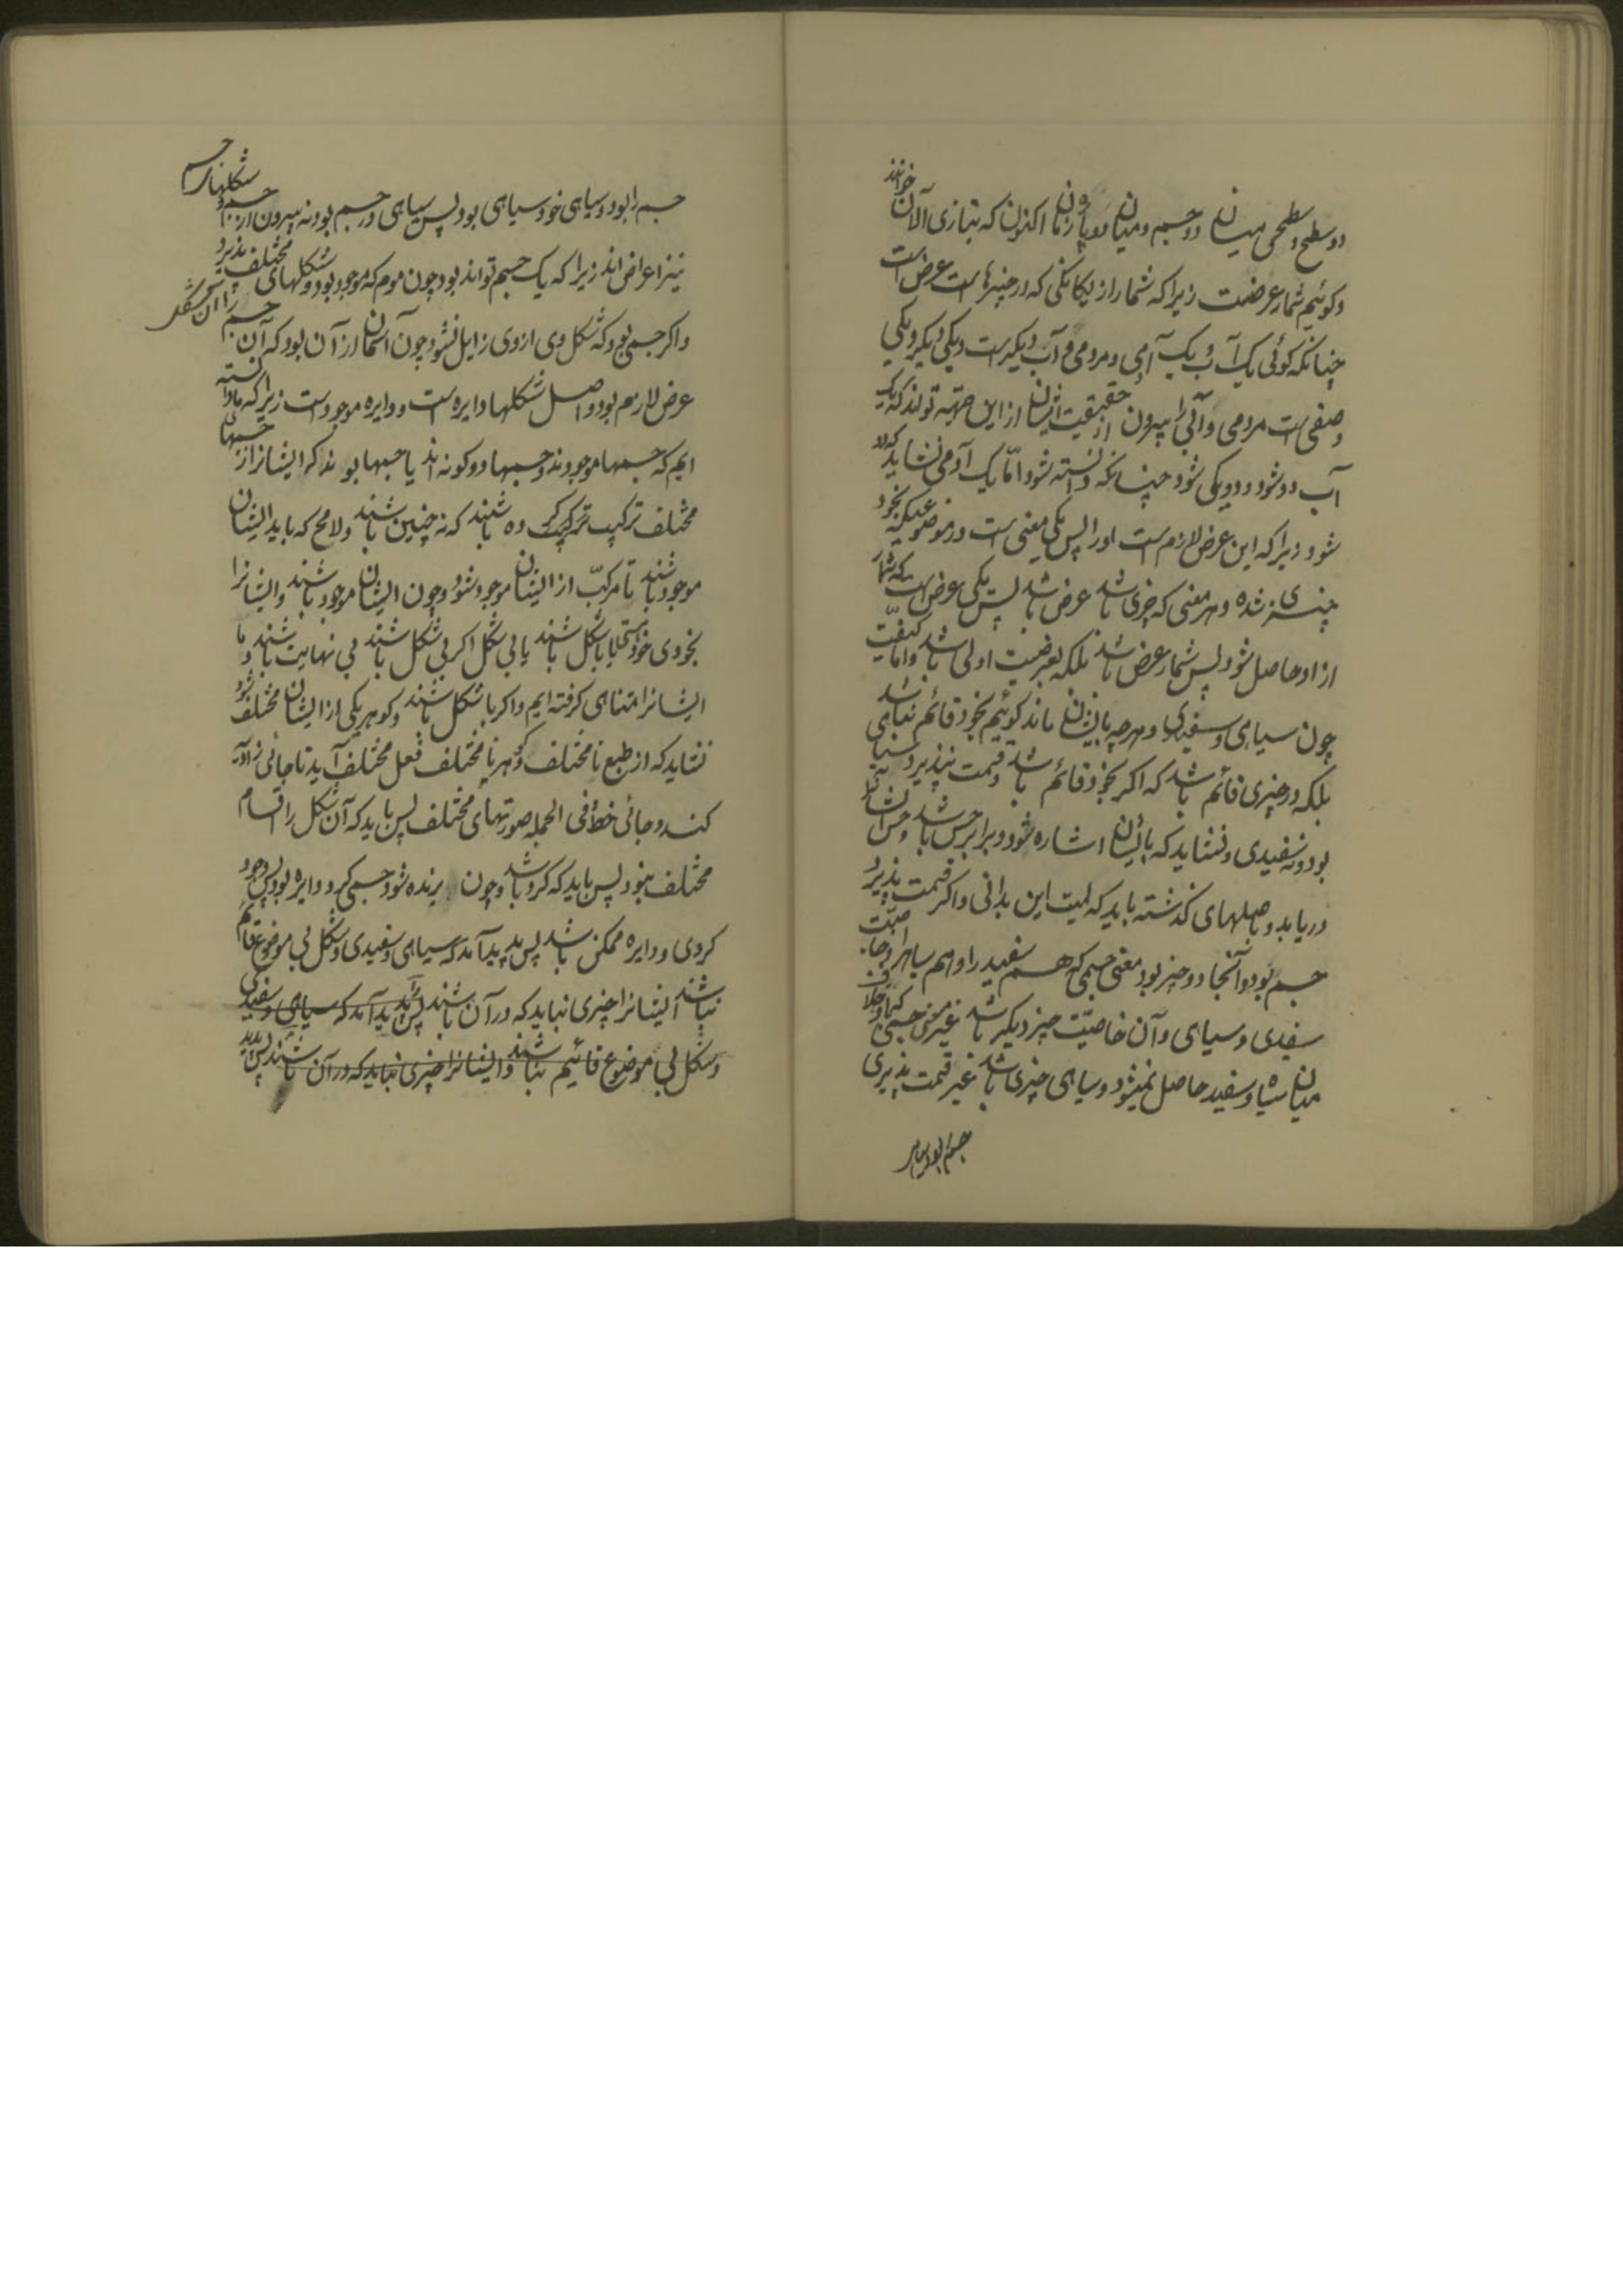 دو سطح و سطحی میان دو جسم و میان دو پاره زمان اکنون که بتازی الآن خوانند
و کوئیم شمار عرضست زیرا که شمار از یکانکی که در چیزهاست عرض است
چنانکه کوئی یک آب و یک آدمی و مردمی و آب دیکرست و یکی دیکر و یکی
وصفی است مردمی و آبی را بیرون از حقیقت ایشان از این جهة تواند که یک
آب دو شود و دو یکی شود چنانکه دانسته شود امّا یک آدمی نشاید که دو
شود زیرا که این عرض لازم است اورا پس یکی معنی است در موضوعیکه بخود
چیزی شده و هر معنی که چنین باشد عرض باشد پس یکی عرض است که شمار
از او حاصل شود پس شمار عرض باشد بلکه بعرضیت اولی باشد و امّا کیفیّت
چون سیاهی و سفیدی و هرچه بایشان ماند کوئیم بخود قائم نباشد
بلکه در چیزی قائم باشد که اکر بخود قائم باشد و قسمت نپذیرد سیاهی
بود و نه سفیدی و نشاید که بایشان اشاره شود و برابر حس باشد و حس آنرا
دریابد و باصلهای کذشته باید که لمیت این بدانی و اکر قسمت پذیرد
جسم بود و آنجا دو چیز بود معنی جسمی که هم سفید را و هم سیاه را و خاصیّت
سفیدی و سیاهی و آن خاصیّت چیز دیکر باشد غیر معنی جسمی
میان سیاه و سفید حاصل نمیشود و سیاهی چیزی باشد غیر قسمت پذیری
جسم را بود و سیاهی خود سیاهی بود پس سیاهی در جسم بود نه بیرون از جسم و شکلهاء جسم
نیز اعراض اند زیرا که یک جسم تواند بود چون موم که موجود بود و شکلهای مختلف پذیرد
و اکر جسمی بود که شکل وی از وی زایل نشود چون آسمان از آن بود که آن جسم را آن شکل
عرض لازم بود و اصل شکلها دایره است و دایره موجودست زیرا که ما دانسته
ایم که جسمها موجودند و جسمها دو کونه اند یا جسمها بوند که ایشانرا از جسمهای
مختلف ترکیب کرده باشند که نه چنین باشند و لامح که باید ایشان
موجود باشند تا مرکّب از ایشان موجود شود و چون ایشان موجود باشند و ایشانرا
بخودی خود هشته یا با شکل باشند یا بی شکل اکر بی شکل باشند بی نهایت باشند و ما
ایشانرا متناهی کرفته ایم و اکر با شکل باشند و کوهر یکی از ایشان مختلف نبود
نشاید که از طبع نامختلف و کوهر نامختلف فعل مختلف آید تا جائی زاویه
کند و جائی خطّ و فی الجمله صورتهای مختلف پس باید که آن شکل را اقسام
مختلف نبود پس باید که کرد باشد و چون بریده شود جسمی کرد دایره بود پس وجود
کردی و دایره ممکن باشد پس پدید آمد که سیاهی و سفیدی و شکل بی موضوع قائم
نباشند ایشانرا چیزی نباید که در آن باشند پس پدید آمد که سیاهی و سفیدی
و شکل بی موضوع قائیم نباشند و ایشانرا چیزی نباید که در آن باشند پس پدید